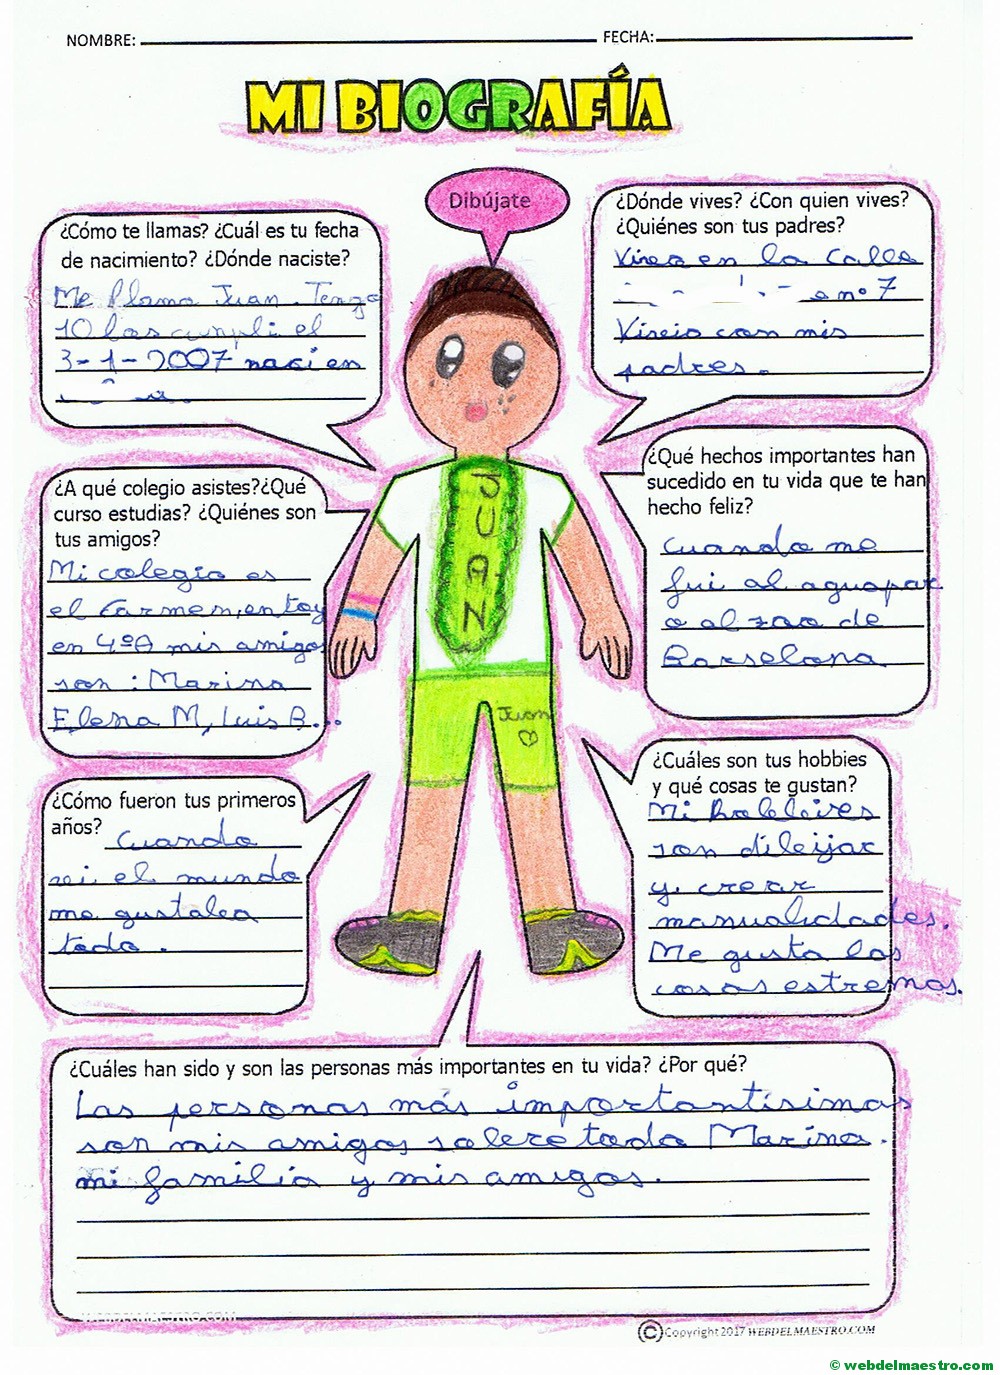 NOMBRE: FECHA:
MI BIOGRAFÍA
Dibújate
¿Cómo te llamas? ¿Cuál es tu fecha
de nacimiento? ¿Dónde naciste?
Me llamo Juan. Tengo
10 los cumpli el
3-1-2007 naci en
¿Dónde vives? ¿Con quien vives?
¿Quiénes son tus padres?
Vivo en la Calle
nº 7
Viveio con mis
padres.
¿A qué colegio asistes?¿Qué
curso estudias? ¿Quiénes son
tus amigos?
Mi colegio es
el Carmen, entoy
en 4ºA mis amigos
son : Marina
Elena M, Luis B...
¿Qué hechos importantes han
sucedido en tu vida que te han
hecho feliz?
Cuando me
fui al aguapar
o al zoo de
Barselona
JUAN
Juan
¿Cómo fueron tus primeros
años?
Cuando
vi el mundo
me gustaba
todo.
¿Cuáles son tus hobbies
y qué cosas te gustan?
Mi
son dibijar
y crear
manualidades.
Me gusta las
cosas estremas.
¿Cuáles han sido y son las personas más importantes en tu vida? ¿Por qué?
Las personas más importantísimas
son mis amigos sobre todo Marina.
mi familia y mis amigos.
WEBDELMAESTRO.COM
©Copyright 2017 WEBDELMAESTRO.COM
© webdelmaestro.com